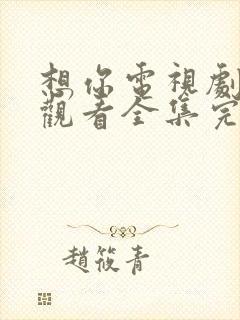 想你電視劇
觀看全集完
趙筱青